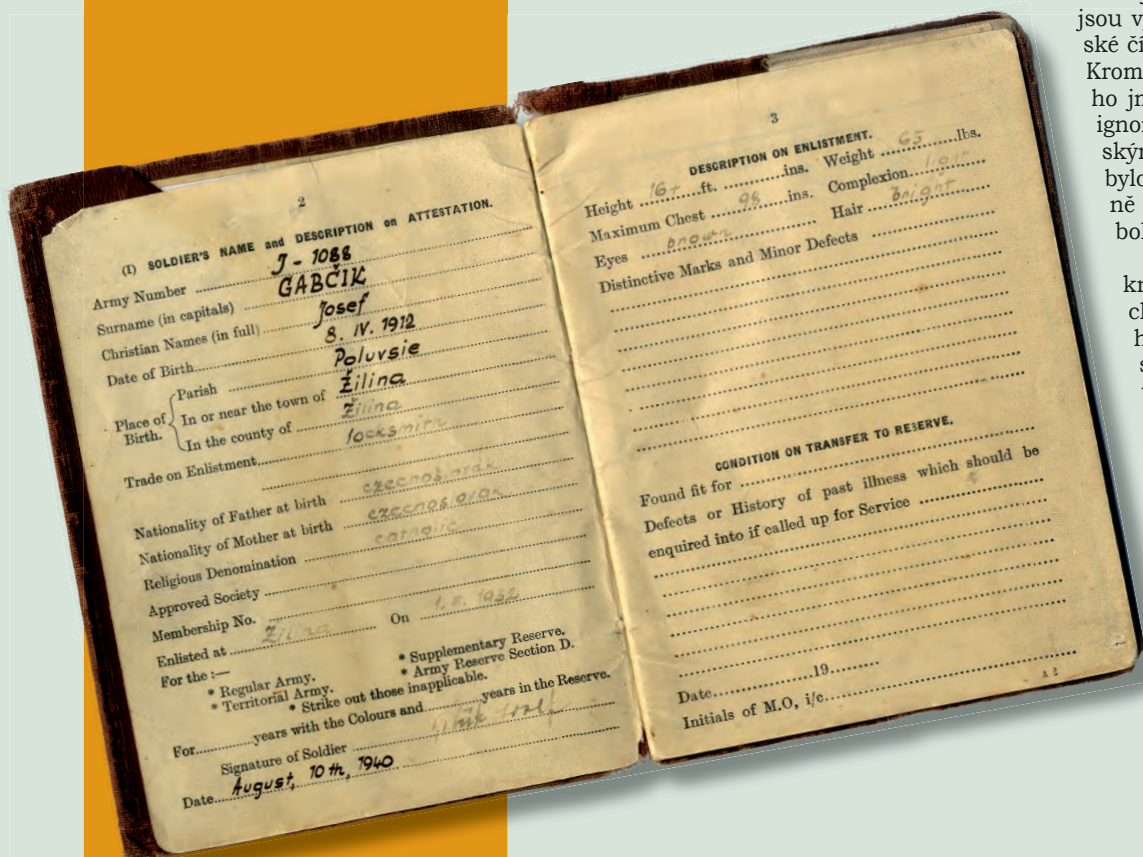 2
(I) SOLDIER'S NAME and DESCRIPTION on ATTESTATION.
Army Number J - 1088
Surname (in capitals) GABČIK
Christian Names (in full) Josef
Date of Birth 8. IV. 1912
Place of Birth. Parish Poluvsie
In or near the town of Žilina
In the county of Žilina
Trade on Enlistment locksmith
Nationality of Father at birth czechoslovak
Nationality of Mother at birth czechoslovak
Religious Denomination catholic
Approved Society
Membership No.
Enlisted at Žilina On 1932
For the :—
* Regular Army. * Supplementary Reserve.
* Territorial Army. * Army Reserve Section D.
* Strike out those inapplicable.
For years with the Colours and years in the Reserve.
Signature of Soldier
Date August, 10th, 1940
3
DESCRIPTION ON ENLISTMENT.
Height ft. ins. Weight 65 lbs.
Maximum Chest 98 ins. Complexion
Eyes brown Hair bright
Distinctive Marks and Minor Defects
CONDITION ON TRANSFER TO RESERVE.
Found fit for
Defects or History of past illness which should be
enquired into if called up for Service
Date 19
Initials of M.O, i/c
A 2
jsou
ské
ho
bylo
ně